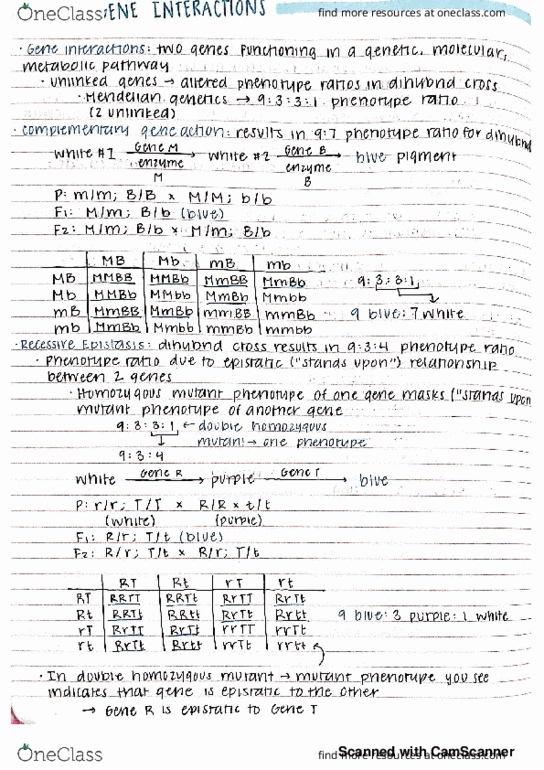 OneClass
GENE INTERACTIONS
find more resources at oneclass.com
· Gene interactions: two genes functioning in a genetic, molecular,
metabolic pathway
· unlinked genes → altered phenotype ratios in dihybrid cross
· Mendelian genetics → 9:3:3:1 phenotype ratio
(2 unlinked)
· complementary gene action: results in 9:7 phenotype ratio for dihybrid
white #1 Gene M → white #2 Gene B → blue pigment
enzyme enzyme
M B
P: m/m; B/B × M/M; b/b
F1: M/m; B/b (blue)
F2: M/m; B/b × M/m; B/b
MB Mb mB mb
MB MMBB MMBb MmBB MmBb 9:3:3:1
Mb MMBb MMbb MmBb Mmbb
mB MmBB MmBb mmBB mmBb 9 blue: 7 white
mb MmBb Mmbb mmBb mmbb
· Recessive Epistasis: dihybrid cross results in 9:3:4 phenotype ratio
· phenotype ratio due to epistatic ("stands upon") relationship
between 2 genes
· Homozygous mutant phenotype of one gene masks ("stands upon
mutant phenotype of another gene
9:3:3:1 ← double homozygous
↓ mutant → one phenotype
9:3:4
white Gene R → purple Gene T → blue
P: r/r; T/T × R/R × t/t
(white) (purple)
F1: R/r; T/t (blue)
F2: R/r; T/t × R/r; T/t
RT Rt rT rt
RT RRTT RRTt RrTT RrTt
Rt RRTt RRtt RrTt Rrtt 9 blue: 3 purple: 1 white
rT RrTT RrTt rrTT rrTt
rt RrTt Rrtt rrTt rrtt
· In double homozygous mutant → mutant phenotype you see
indicates that gene is epistatic to the other
→ Gene R is epistatic to Gene T
OneClass
find more resources at oneclass.com
Scanned with CamScanner